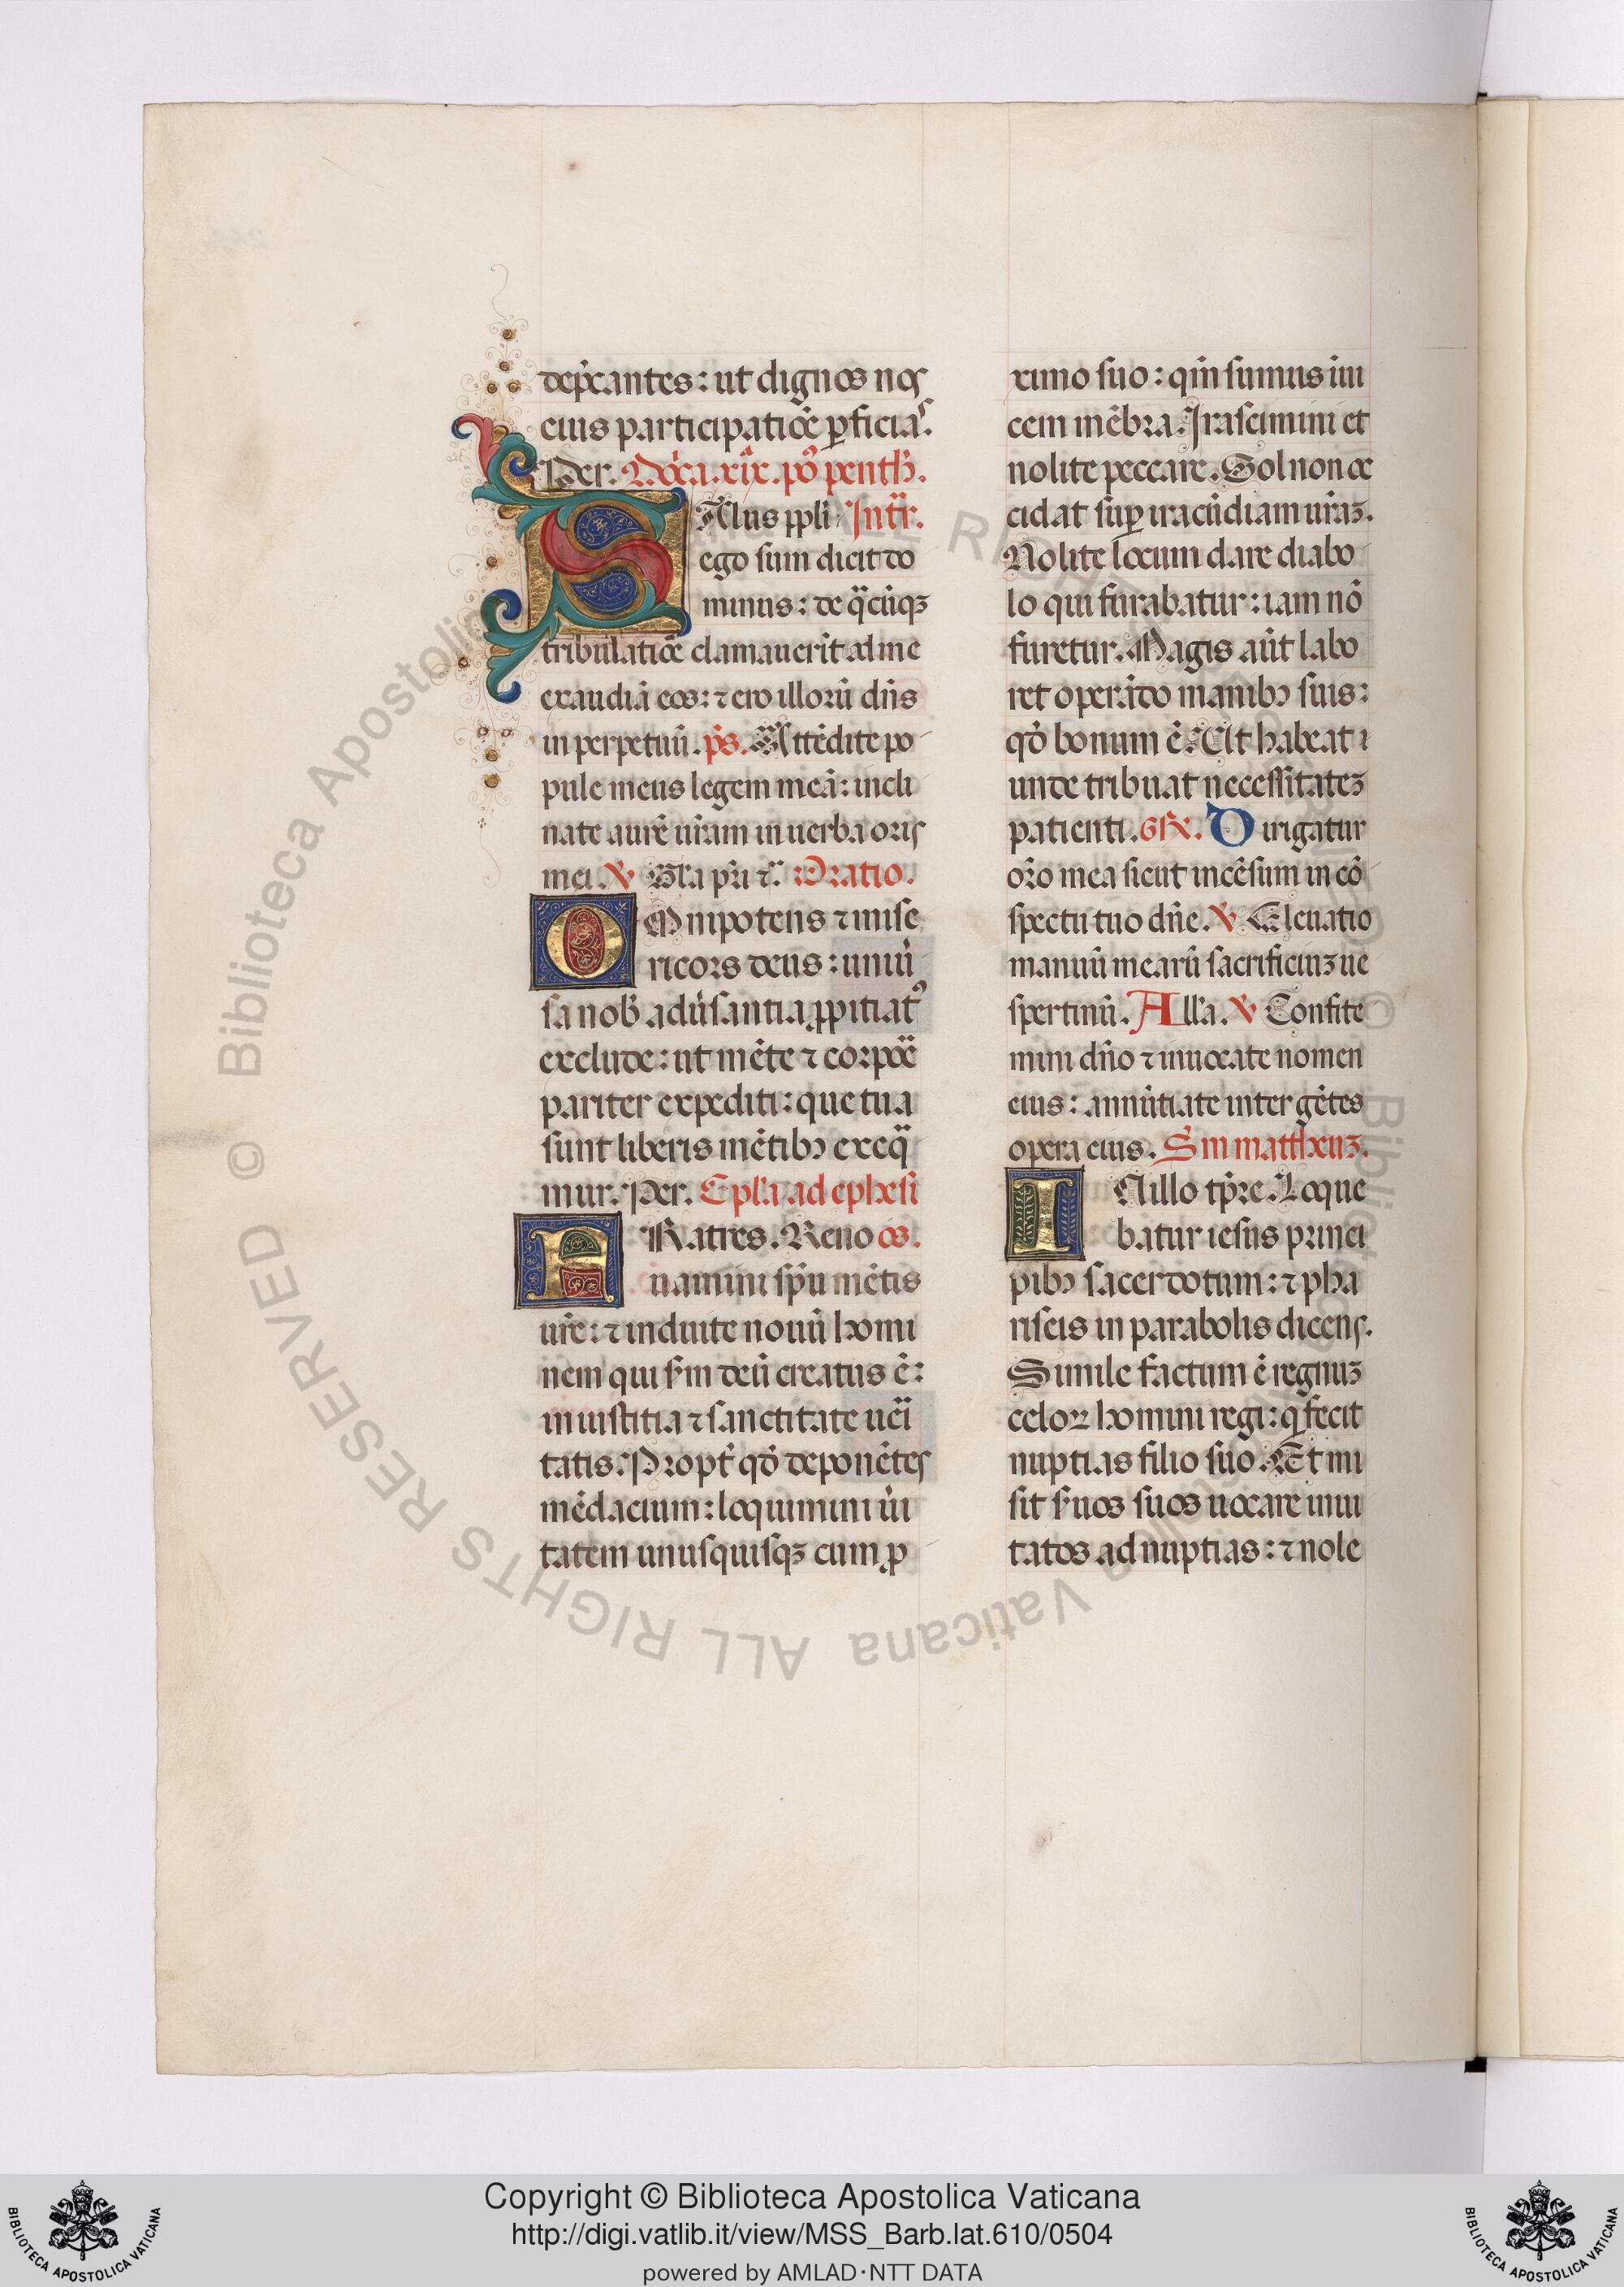 dep̄cantes: ut dignos nos
eius participatiōe ꝑficias.
Per. Dōca. xix. pꝰ penth̄.
SAlus ppli Intr̄.
ego sum dicit do
minus: de q̄cūqꝫ
tribulatiōe clamauerit ad me
exaudiā eos: ⁊ ero illorū dn̄s
in perpetuū. p̄s. Attēdite po
pule meus legem meā: incli
nate aurē ur̄am in uerba oris
mei. ℣ Gl̄a pr̄i ⁊c̄. Oratio.
OMnipotens ⁊ mise
ricors deus: uniū
sa nob̄ adūsantia ꝓpitiatꝰ
exclude: ut mēte ⁊ corpoē
pariter expediti: que tua
sunt liberis mētibꝫ exeq̄
mur. Per. Epl̄a ad ephesi
FRatres. Reno os.
uamini sp̄u mētis
ur̄e: ⁊ induite nouū homi
nem qui s̄m deū creatus ē:
in iustitia ⁊ sanctitate ueī
tatis. Propt̄ qō deponētes
mēdacium: loquimini ūi
tatem unusquisqꝫ cum ꝓ
ximo suo: qm̄ sumus inui
cem mēbra. Irascimini et
nolite peccare. Sol non oc
cidat suꝑ iracūdiam ur̄aꝫ.
Nolite locum dare diabo
lo qui furabatur: iam nō
furetur. Magis aūt labo
ret operādo manibꝫ suis:
qō bonum ē. Ut habeat
unde tribuat necessitateꝫ
patienti. GR̄. Dirigatur
or̄o mea sicut incēsum in cō
spectu tuo dn̄e. ℣ Eleuatio
manuū mearū sacrificiuꝫ ue
spertinū. All̄a. ℣ Confite
mini dn̄o ⁊ inuocate nomen
eius: annūtiate inter gētes
opera eius. Sm̄ mattheuꝫ.
IN illo tp̄re. Loque
batur iesus princi
pibꝫ sacerdotum: ⁊ pha
riseis in parabolis dicens.
Simile factum ē regnuꝫ
celoꝝ homini regi: q̄ fecit
nuptias filio suo. Et mi
sit s̄uos suos uocare inui
tatos ad nuptias: ⁊ nole
© Biblioteca Apostolica Vaticana ALL RIGHTS RESERVED
Copyright © Biblioteca Apostolica Vaticana
http://digi.vatlib.it/view/MSS_Barb.lat.610/0504
powered by AMLAD·NTT DATA
BIBLIOTECA APOSTOLICA VATICANA
BIBLIOTECA APOSTOLICA VATICANA